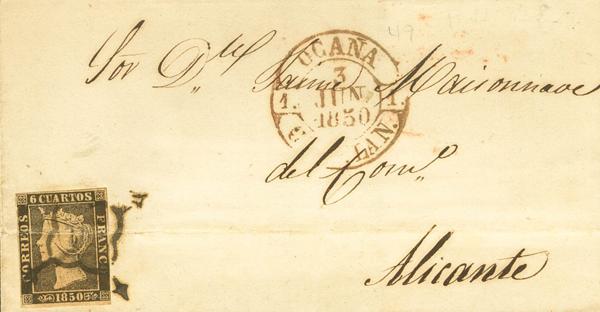 49
OCAÑA
3
1. JUN. 1.
1850
LAN.
Sor Dn Jaime Maisonnave
del Como
Alicante
6 CUARTOS
CORREOS
FRANCO
1850